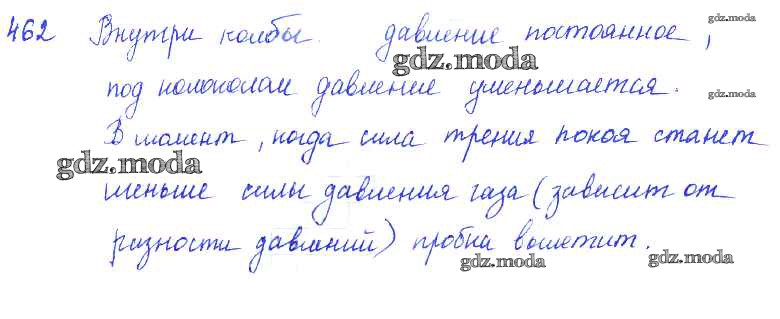 462 Внутри колбы. давление постоянное,
gdz.moda
gdz.moda
под колоколом давление уменьшается.
gdz.moda
В момент, когда сила трения покоя станет
gdz.moda
меньше силы давления газа (зависит от
разности давлений) пробка вылетит.
gdz.moda
gdz.moda